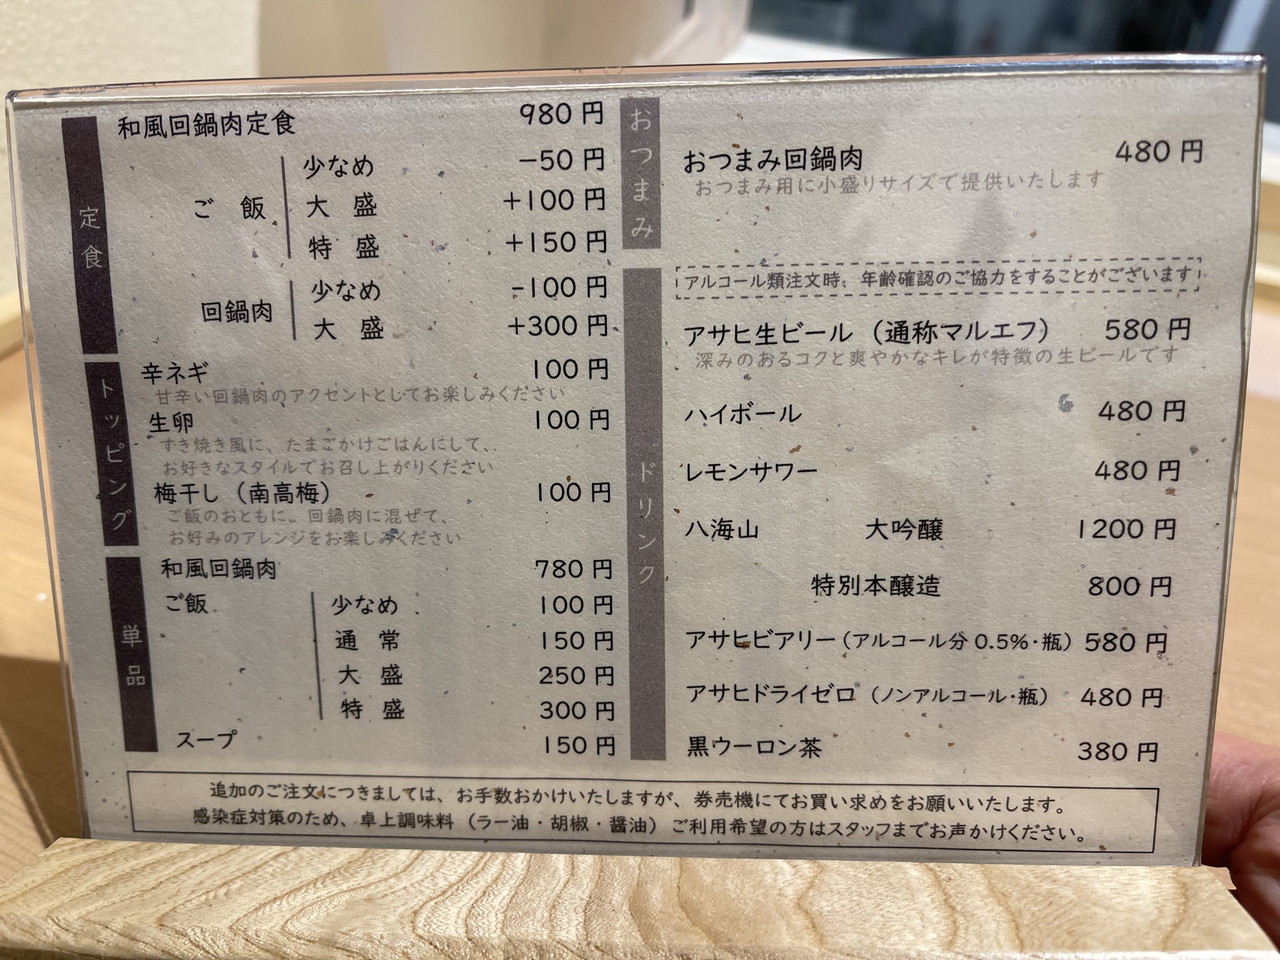 定食
和風回鍋肉定食 980円
ご飯
少なめ −50円
大盛 +100円
特盛 +150円
回鍋肉
少なめ -100円
大盛 +300円
トッピング
辛ネギ 100円
甘辛い回鍋肉のアクセントとしてお楽しみください
生卵 100円
すき焼き風に、たまごかけごはんにして、
お好きなスタイルでお召し上がりください
梅干し（南高梅） 100円
ご飯のおともに。回鍋肉に混ぜて、
お好みのアレンジをお楽しみください
単品
和風回鍋肉 780円
ご飯
少なめ 100円
通常 150円
大盛 250円
特盛 300円
スープ 150円
おつまみ
おつまみ回鍋肉 480円
おつまみ用に小盛りサイズで提供いたします
ドリンク
アルコール類注文時、年齢確認のご協力をすることがございます
アサヒ生ビール（通称マルエフ） 580円
深みのあるコクと爽やかなキレが特徴の生ビールです
ハイボール 480円
レモンサワー 480円
八海山 大吟醸 1200円
特別本醸造 800円
アサヒビアリー（アルコール分0.5%・瓶） 580円
アサヒドライゼロ（ノンアルコール・瓶） 480円
黒ウーロン茶 380円
追加のご注文につきましては、お手数おかけいたしますが、券売機にてお買い求めをお願いいたします。
感染症対策のため、卓上調味料（ラー油・胡椒・醤油）ご利用希望の方はスタッフまでお声かけください。